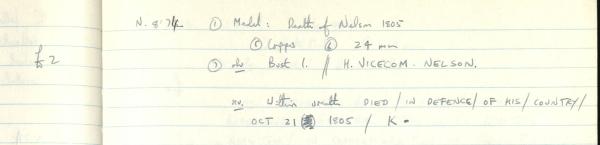 N. 8.74 ① Medal: Death of Nelson 1805
⑤ Copper ⑥ 24 mm
£2 ⑦ obv Bust l. // H. VICECOM. NELSON.
rev. Within wreath DIED / IN DEFENCE / OF HIS / COUNTRY /
OCT 21 1805 / K.